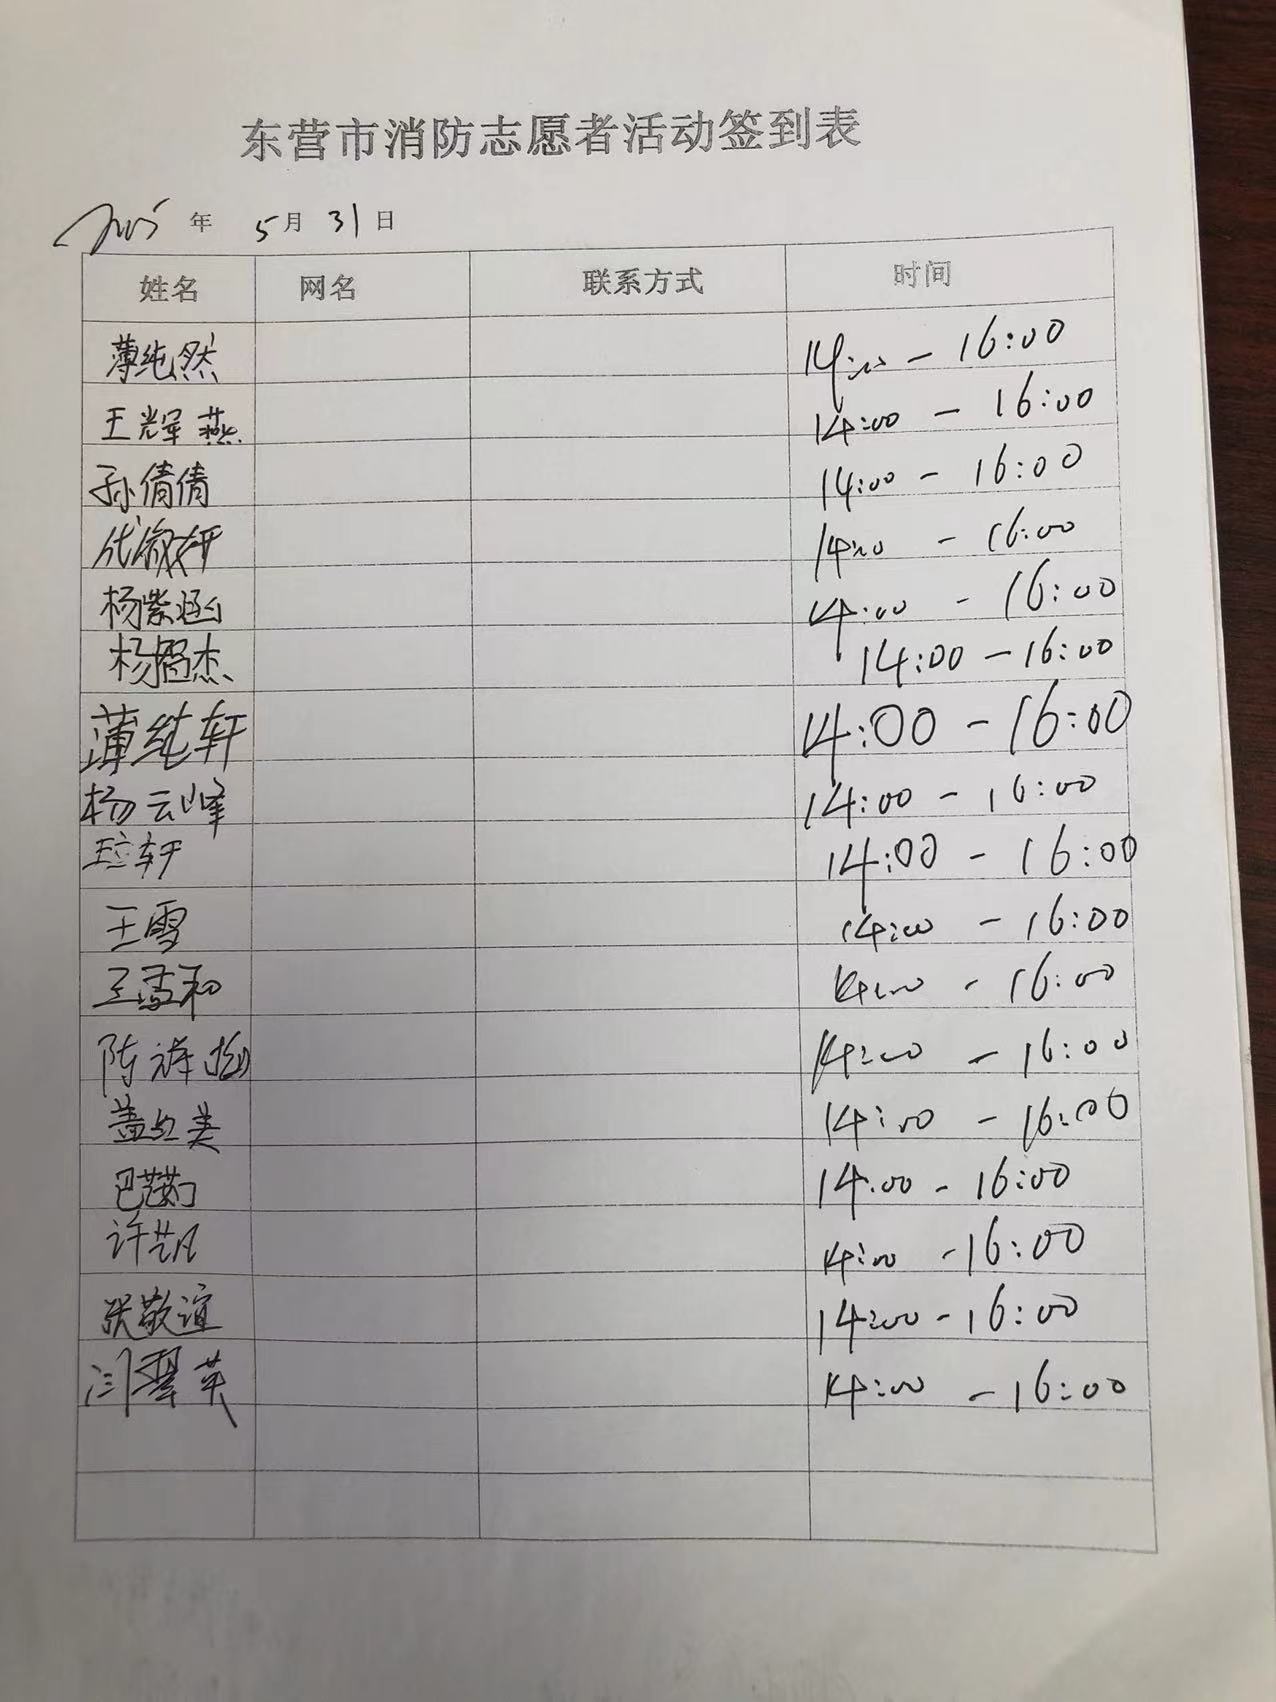 东营市消防志愿者活动签到表
2025年 5月31日
姓名 网名 联系方式 时间
薄纯然 14:00 - 16:00
王辉燕 14:00 - 16:00
孙倩倩 14:00 - 16:00
14:00 - 16:00
杨紫涵 14:00 - 16:00
杨智杰 14:00 - 16:00
薄纯轩 14:00 - 16:00
杨云峰 14:00 - 16:00
14:00 - 16:00
王雪 14:00 - 16:00
王孟和 14:00 - 16:00
14:00 - 16:00
盖红美 14:00 - 16:00
14:00 - 16:00
许凯 14:00 - 16:00
张敬谊 14:00 - 16:00
闫翠英 14:00 - 16:00